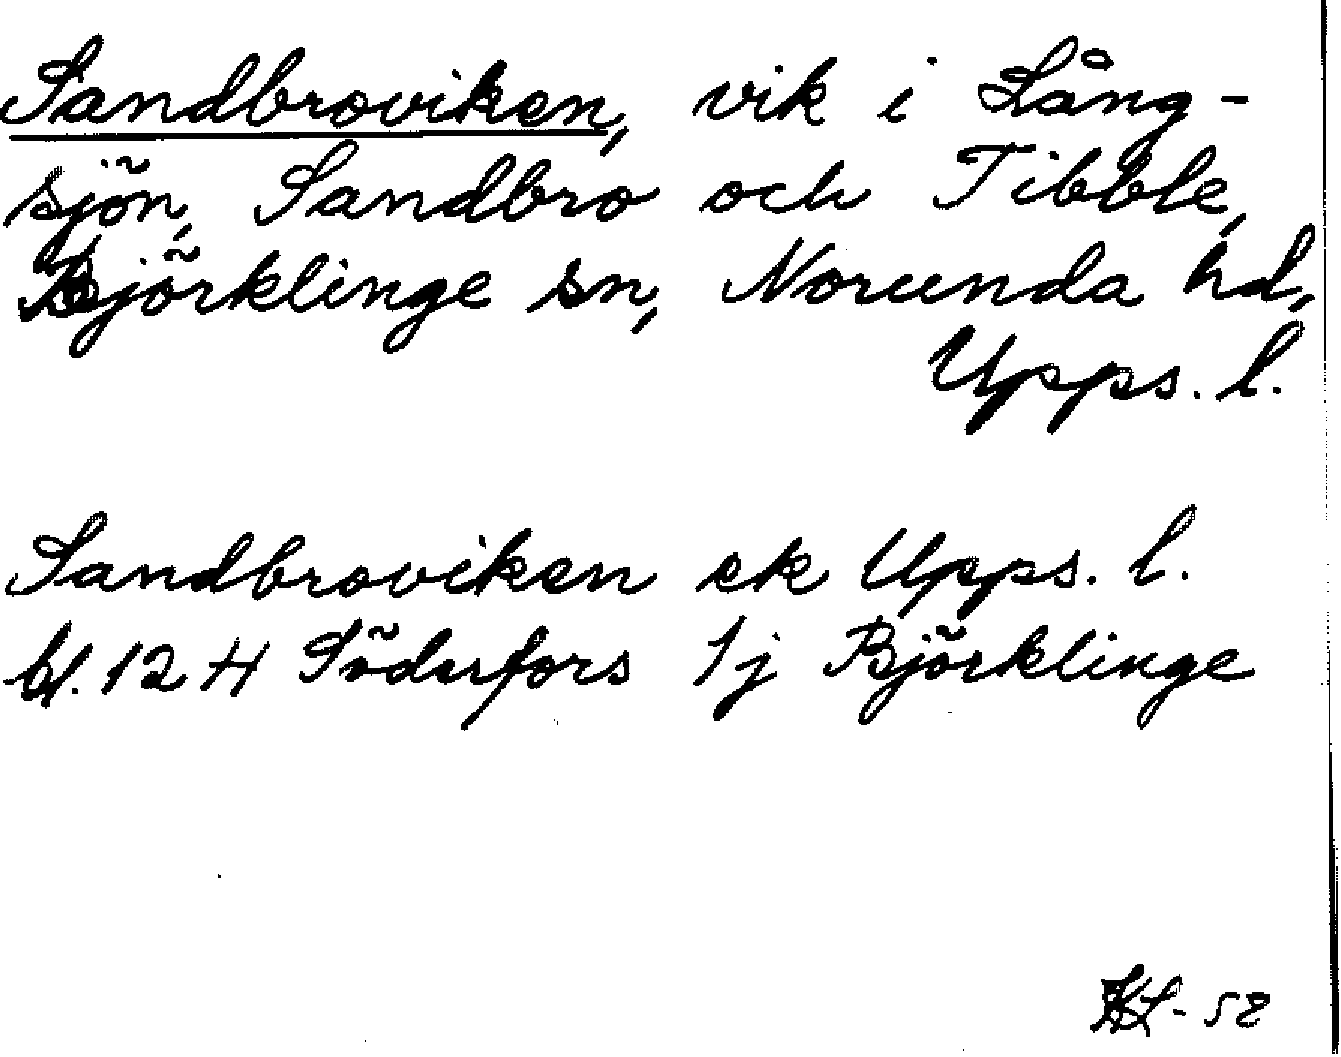 Sandbroviken, vik i Lång-
sjön, Sandbro och Tibble,
Björklinge sn, Norunda hd,
Upps. l.
Sandbroviken ek Upps. l.
bl. 12 H Söderfors 1j Björklinge
-58